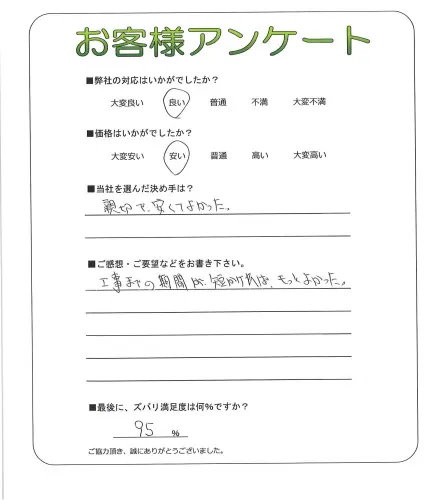 お客様アンケート
■弊社の対応はいかがでしたか?
大変良い 良い 普通 不満 大変不満
■価格はいかがでしたか?
大変安い 安い 普通 高い 大変高い
■当社を選んだ決め手は?
親切で、安くてよかった。
■ご感想・ご要望などをお書き下さい。
工事までの期間が、短かければ、もっとよかった。
■最後に、ズバリ満足度は何%ですか?
95 %
ご協力頂き、誠にありがとうございました。